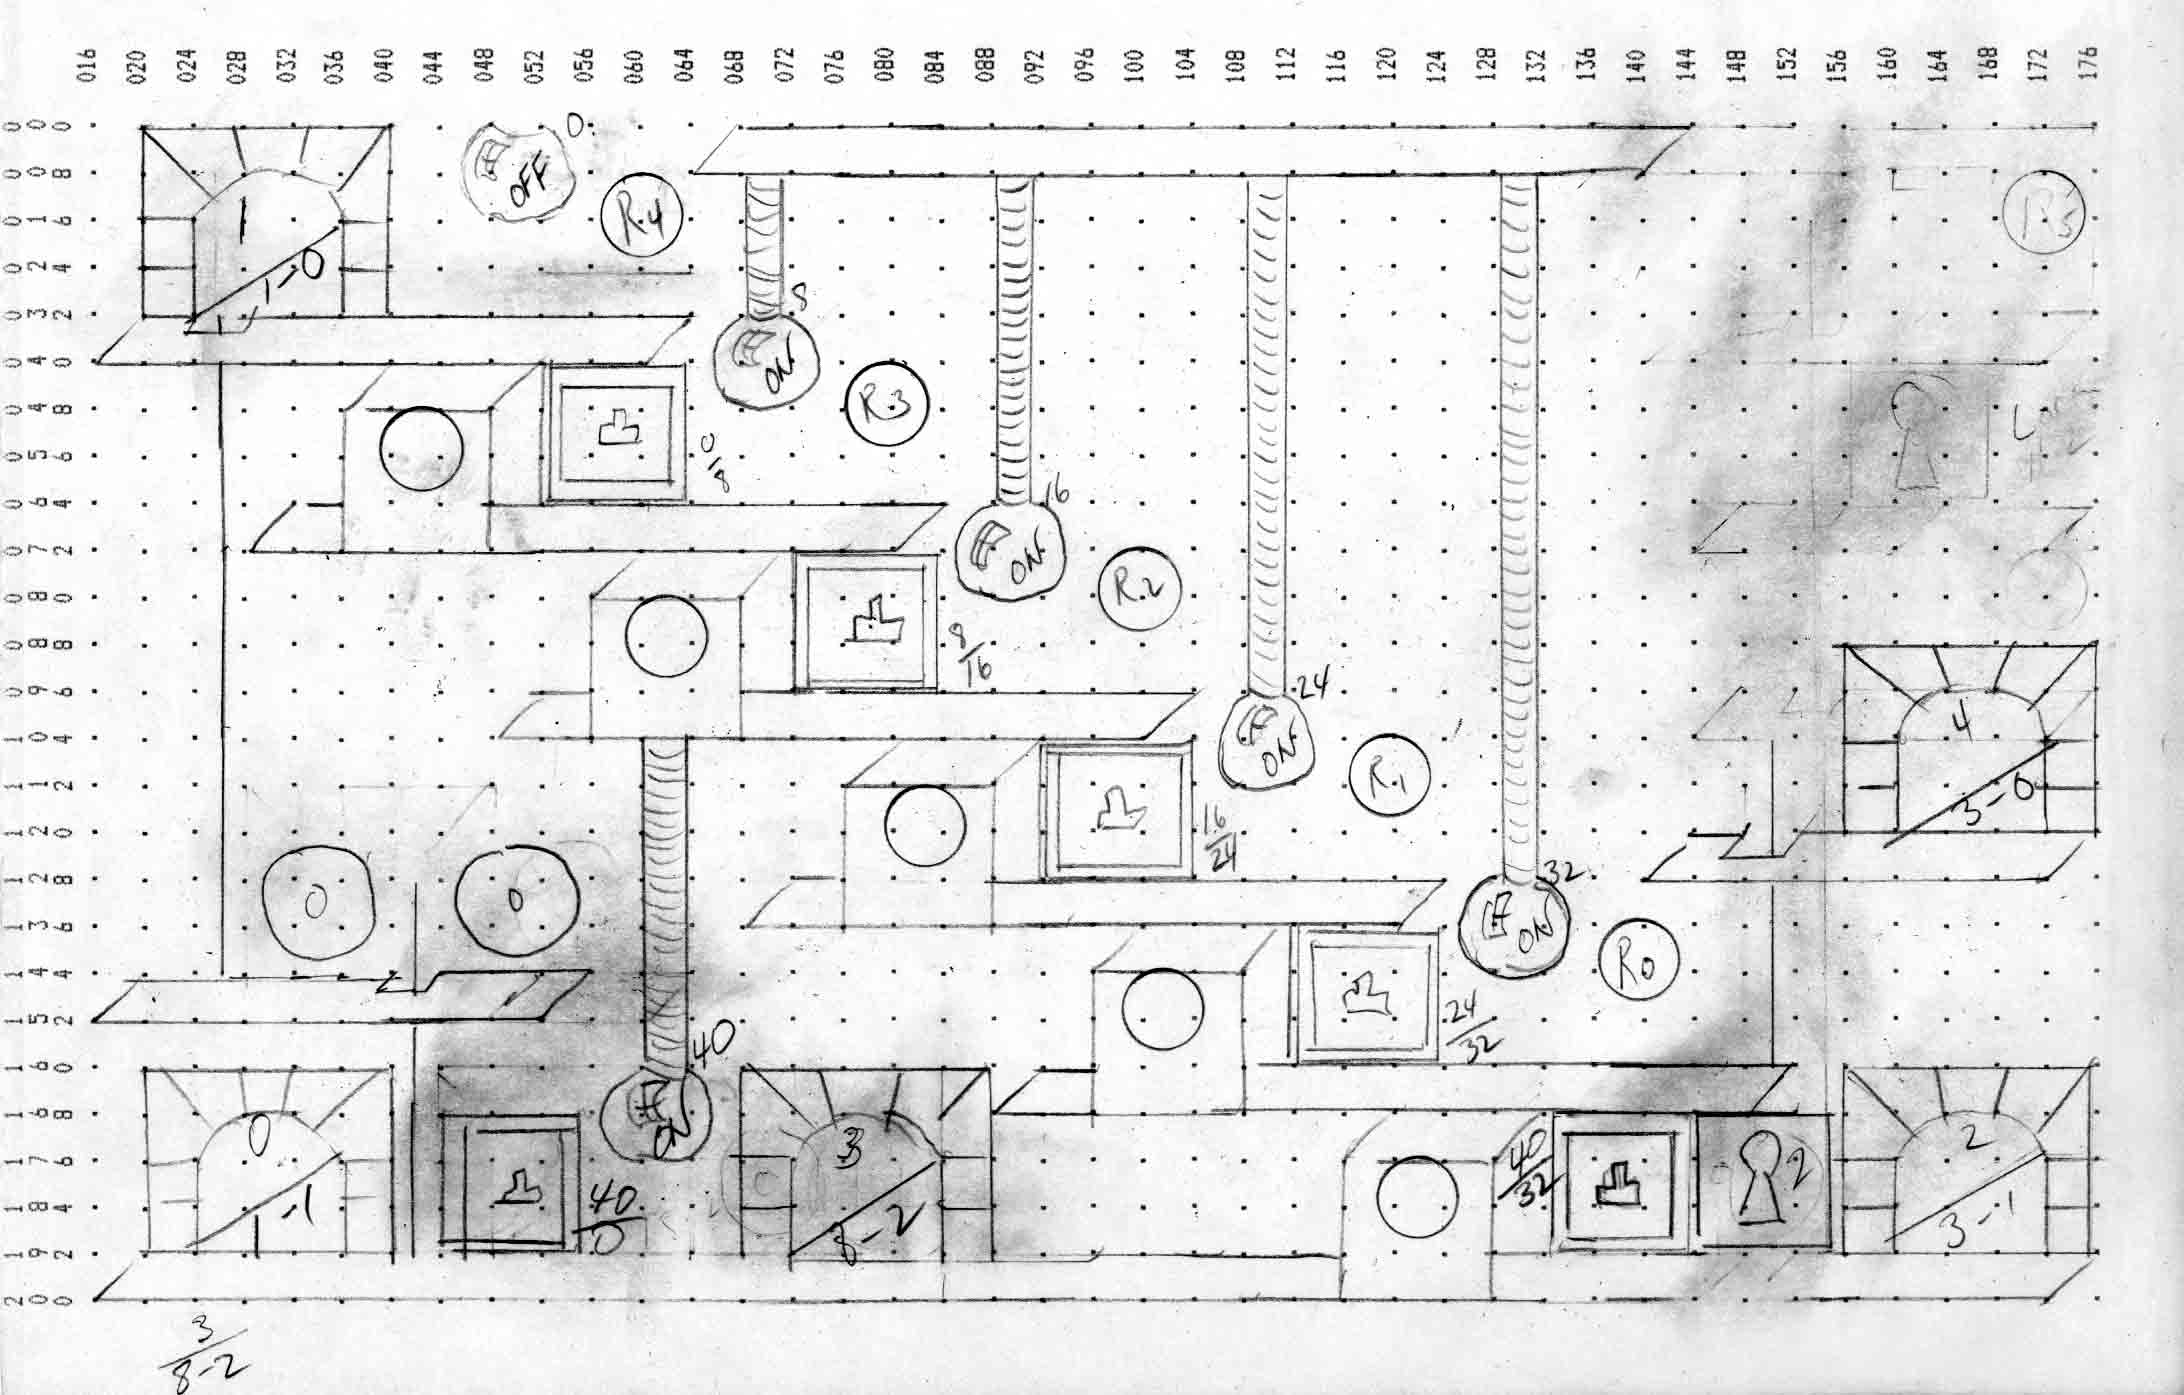 016 020 024 028 032 036 040 044 048 052 056 060 064 068 072 076 080 084 088 092 096 100 104 108 112 116 120 124 128 132 136 140 144 148 152 156 160 164 168 172 176
000
008
016
024
032
040
048
056
064
072
080
088
096
104
112
120
128
136
144
152
160
168
176
184
192
200
0
OFF
R.4
R.5
1
1-0
8
ON
R.3
0/8
16
ON
R.2
8/16
24
ON
R.1
4
3-0
16/24
32
ON
R0
0
0
24/32
40
ON
0
1-1
40/0
3
8-2
40/32
2
2
3-1
3
8-2